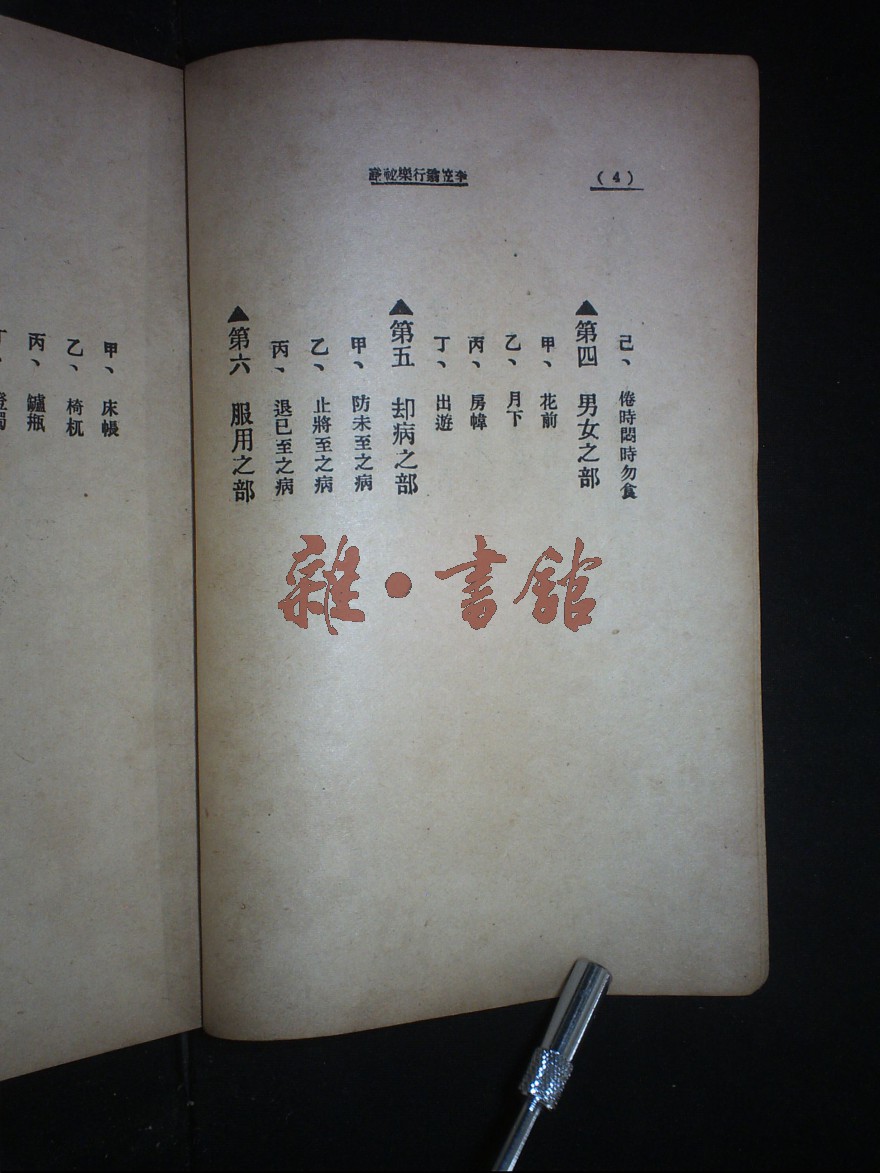 (4)
李笠翁行樂祕
己、倦時悶時勿食
▲第四 男女之部
甲、花前
乙、月下
丙、房幃
丁、出遊
▲第五 却病之部
甲、防未至之病
乙、止將至之病
丙、退已至之病
▲第六 服用之部
甲、床帳
乙、椅杌
丙、罏瓶
雜·書館